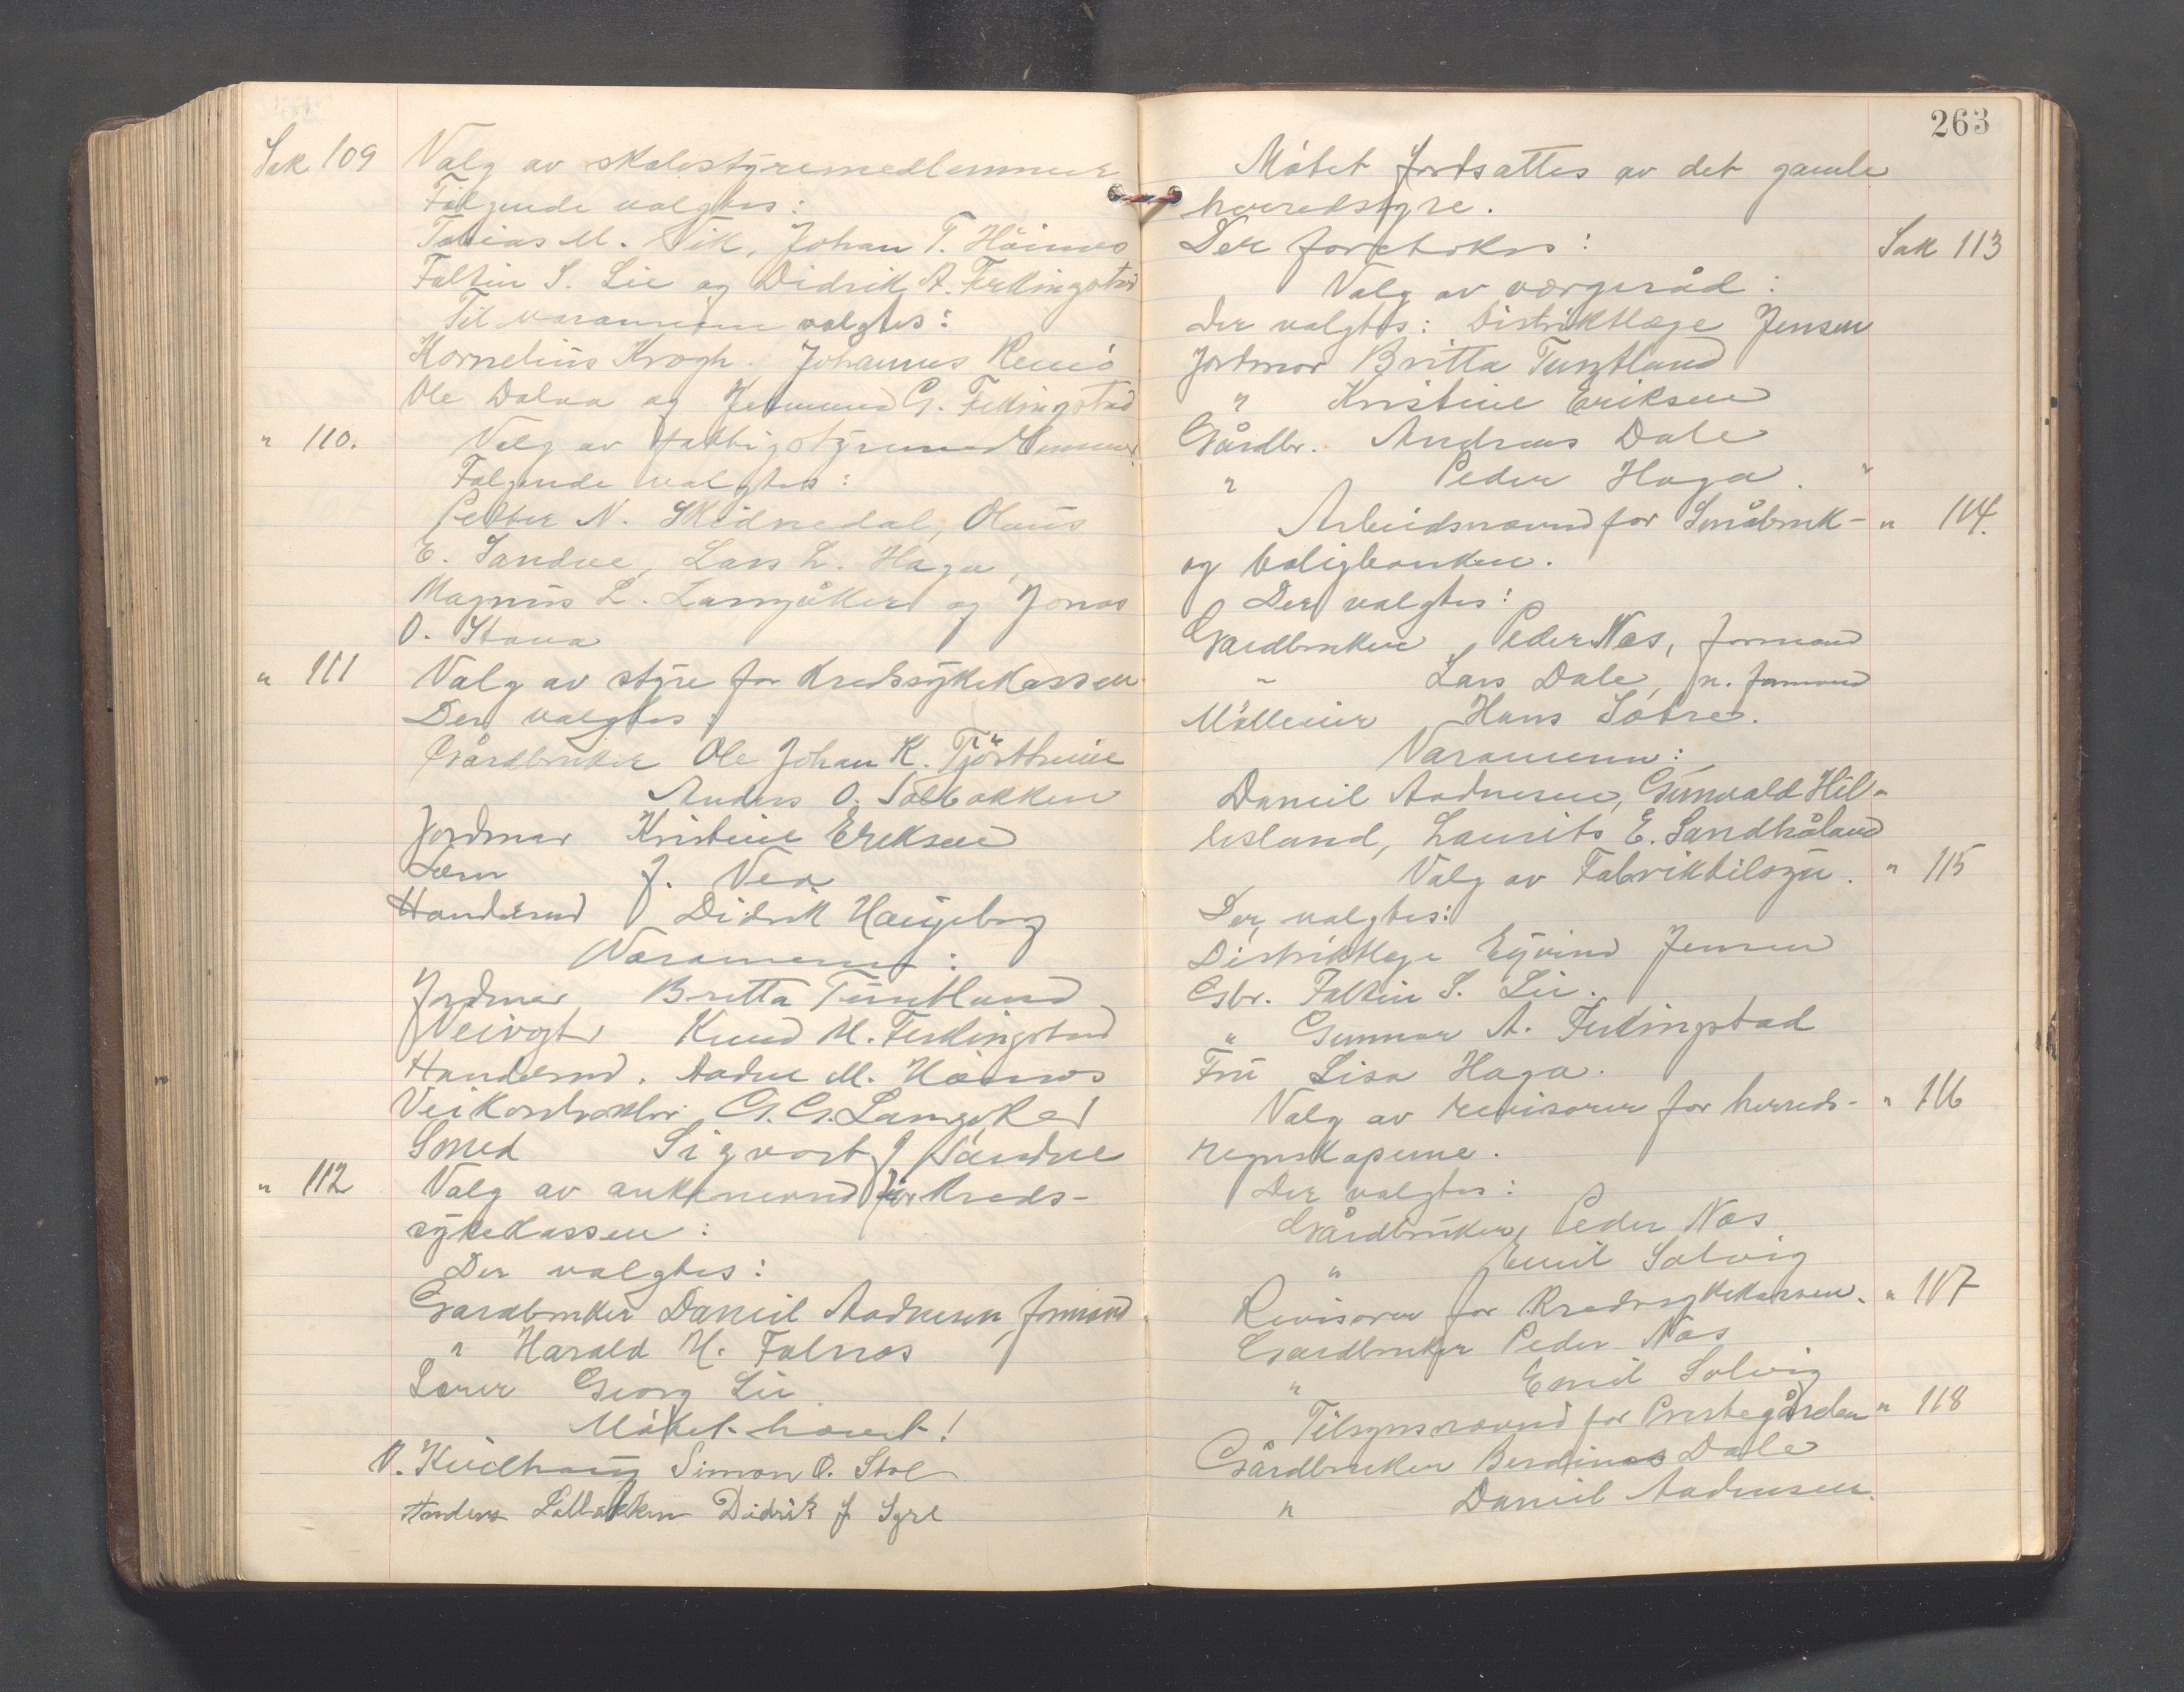 Sak 109 Valg av skolestyremedlemmer
Følgende valgtes:
Tobias M. Vik, Johan T. Höines
Faltin S. Lie og Didrik A. Ferkingstad
Til varamenn valgtes:
Kornelius Krogh. Johannes
Ole Dalva og G. Ferkingstad
" 110. Valg av fattigstyremedlemmer
Følgende valgtes:
Petter N. Skidnedal, Olaus
E. Sandve, Lars L. Haga,
Magnus L. Langåker og Jonas
O. Stava
" 111 Valg av styre for Kredssykekassen
Der valgtes:
Gårdbruker Ole Johan K. Tjöstheim
" Anders O. Solbakken
Jordmor Kristine Eriksen
J. Vea
Handelsmd Didrik Haugeberg
Varamenn:
Jordmor Britta Tuntland
Veivogter Knud M. Ferkingstad
Handelsmd. Aadne M. Höines
Veikontraktör G. G. Langåker
Smed Sigvart J Sandve
" 112 Valg av ankenevnd for Kreds-
sykekassen:
Der valgtes:
Gardbruker Daniel Aadnesen, formand
" Harald H. Falnes
Lærer Georg Lie
Mötet hævet!
O. Kvilhaug Simon O. Stol
Anders Solbakken Didrik J Syre
263
Mötet fortsattes av det gamle
herredstyre.
Der foretokes: Sak 113
Valg av vergeråd:
Der valgtes: Distriktlæge Jensen
Jordmor Britta Tuntland
" Kristine Eriksen
Gårdbr. Andreas Dale
" Peder Haga.
Arbeidsnevnd for Småbruk- " 114.
og boligbanken.
Der valgtes:
Gardbruker Peder Nes, formand
" Lars Dale, n. formand
Mölleier Hans Sætre.
Varamenn:
Daniel Aadnesen, Gunvald Hil-
lesland, Laurits E. Sandhåland
Valg av Fabriktilsyn. " 115
Der valgtes:
Distriktlæge Eyvind Jensen
Gbr. Faltin S. Lie.
" Gunnar A. Ferkingstad
Fru Lisa Haga.
Valg av revisorer for herreds- " 116
regnskaperne.
Der valgtes:
Gårdbruker Peder Nes
" Emil Solvig
Revisorer for Kredssykekassen. " 117
Gardbruker Peder Nes
" Emil Solvig
Tilsynsnevnd for Prestegården " 118
Gårdbruker Berdines Dale
" Daniel Aadnesen.